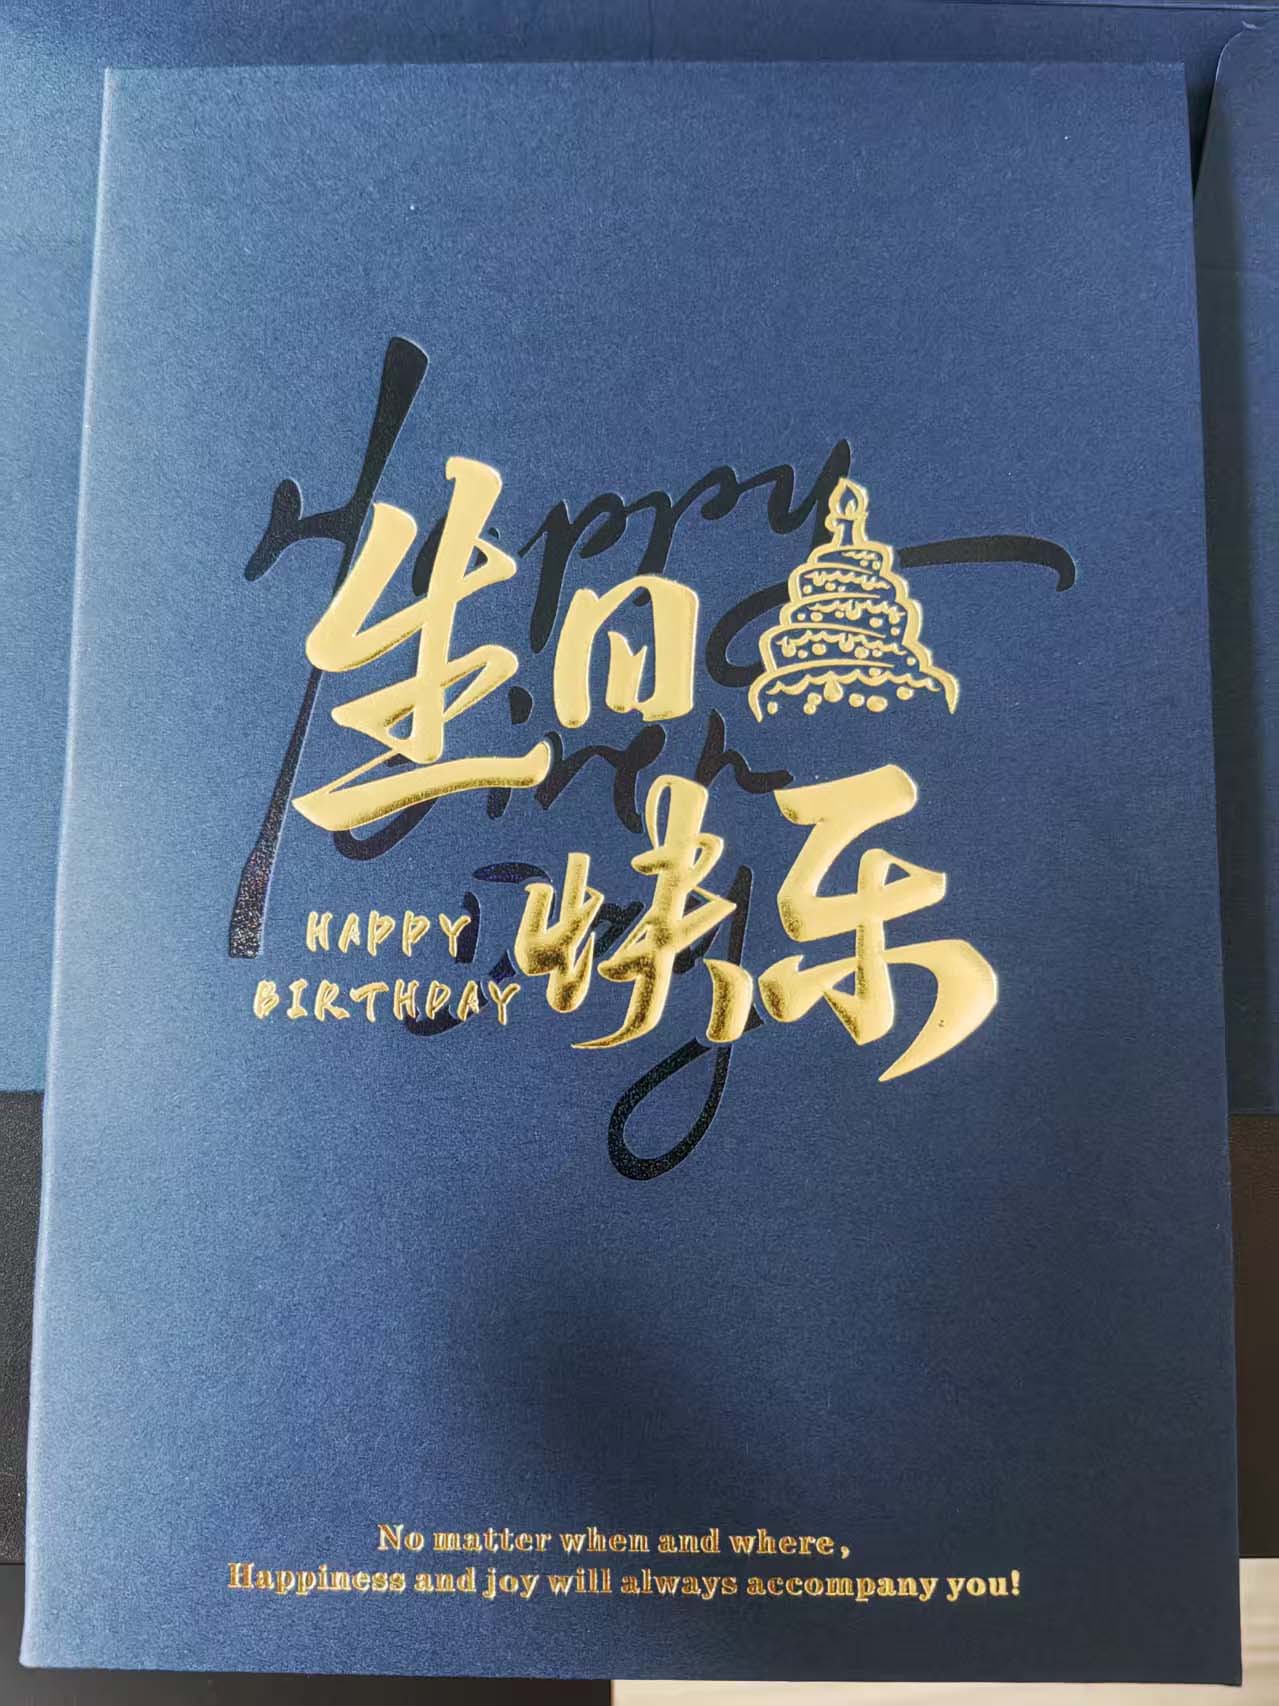 生日
快乐
HAPPY
BIRTHDAY
Happy
Day
No matter when and where,
Happiness and joy will always accompany you!